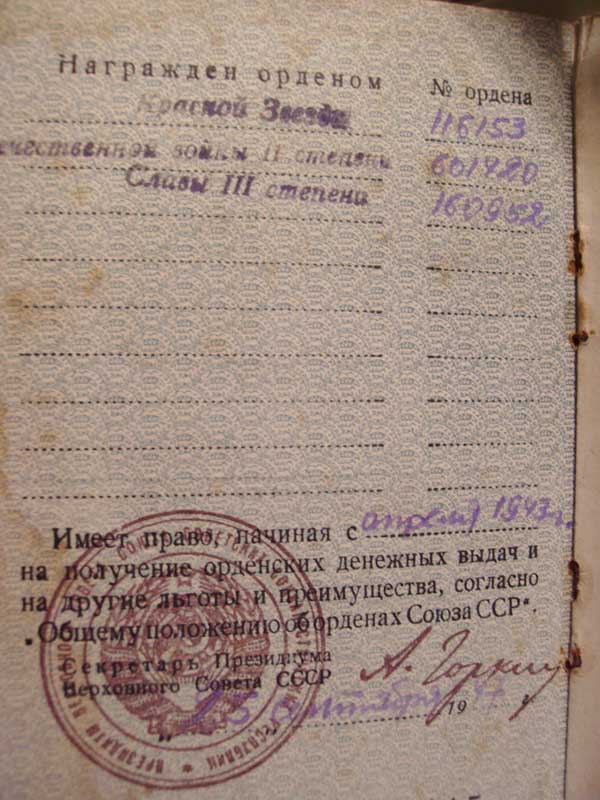 Награжден орденом № ордена
Красной Звезды 116153
чественной войны II степени 601420
Славы III степени 160952
Имеет право, начиная с апреля 1943 г.
на получение орденских денежных выдач и
на другие льготы и преимущества, согласно
„Общему положению об орденах Союза ССР“.
Секретарь Президиума
Верховного Совета СССР А. Горкин
19 7 г.